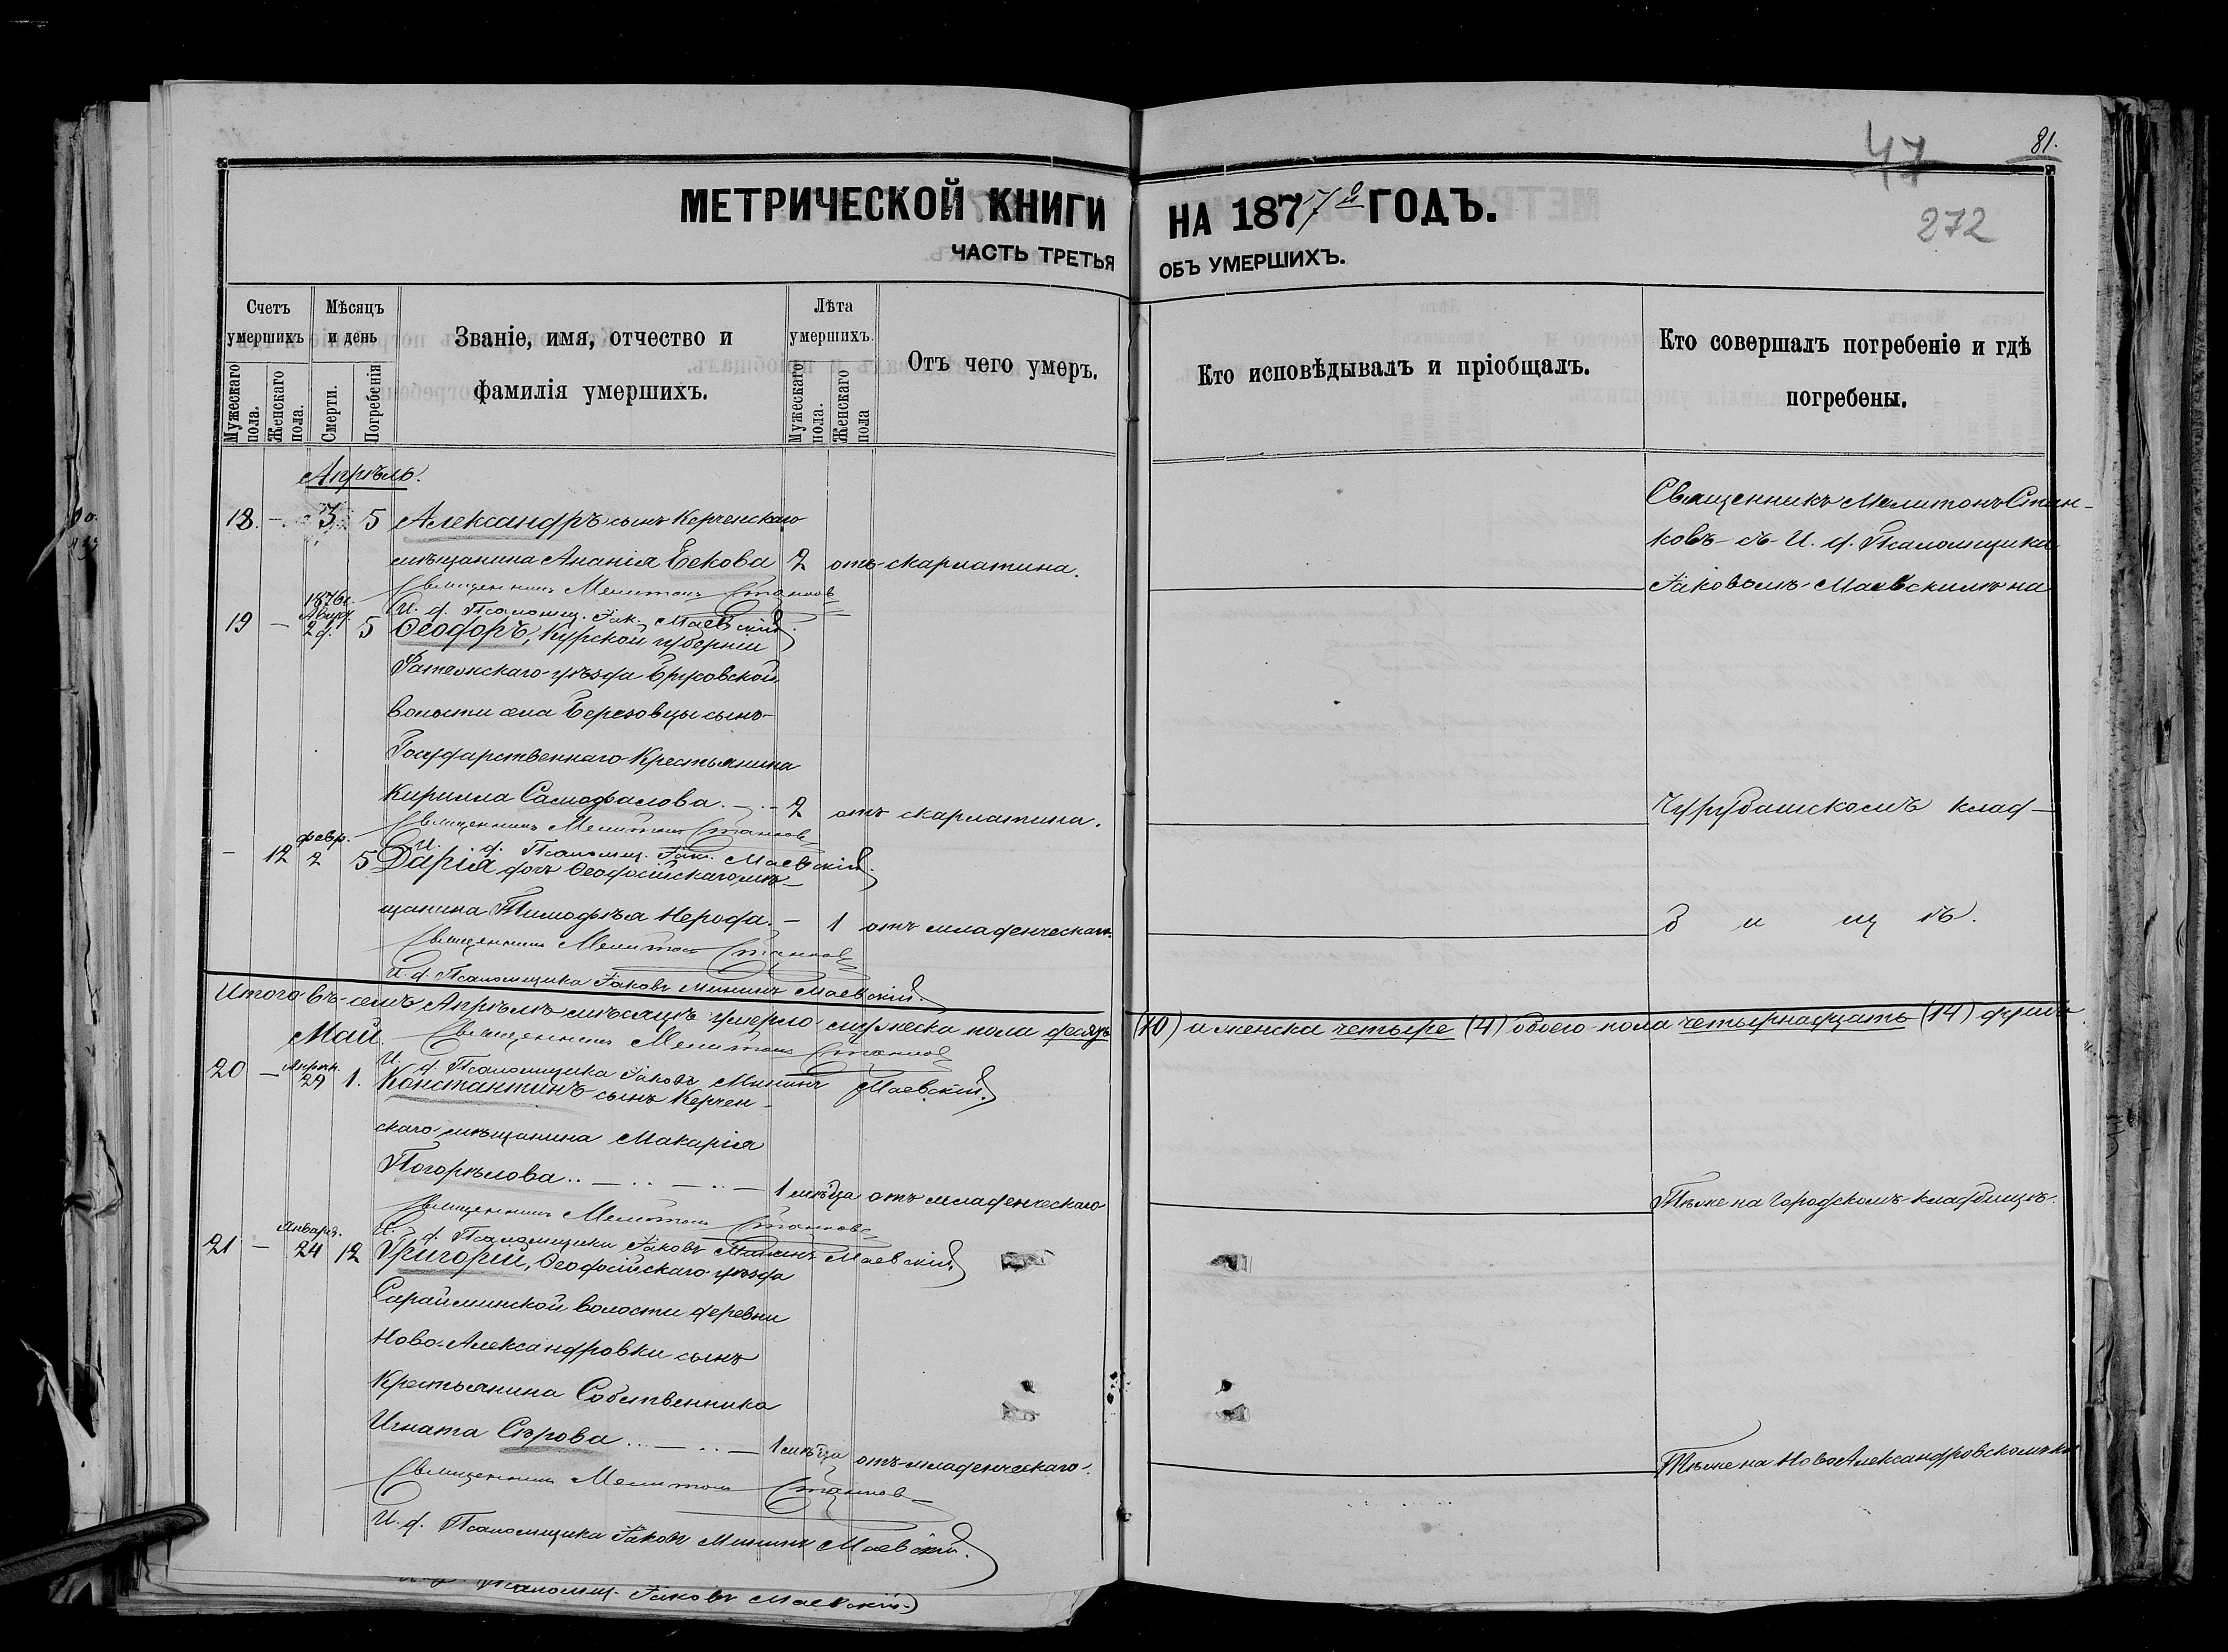 81.
47
272
МЕТРИЧЕСКОЙ КНИГИ НА 1877й ГОДЪ.
ЧАСТЬ ТРЕТЬЯ ОБЪ УМЕРШИХЪ.
Счетъ умершихъ
Мужескаго пола.
Женскаго пола.
Мѣсяцъ и день
Смерти.
Погребенія
Званіе, имя, отчество и
фамилія умершихъ.
Лѣта умершихъ.
Мужескаго пола.
Женскаго пола
Отъ чего умеръ.
Кто исповѣдывалъ и пріобщалъ.
Кто совершалъ погребеніе и гдѣ
погребены.
Апрѣль.
18. – 3 5 Александръ сынъ Керченскаго
мѣщанина Ананія Бекова 2 отъ скарлатина.
Священникъ Мелитонъ Станков
И. д. Псаломщ. Іак. Маевскій.
Священникъ Мелитонъ Стан-
ковъ съ И. д. Псаломщика
Іаковомъ Маевскимъ на
19 – 1876г. 2д. 5 Ѳеодоръ, Курской губерніи
Фатежскаго уѣзда Брусовской
волости села Березовцы сынъ
Государственнаго Крестьянина
Кирилла Самофалова. – 2 отъ скарлатина.
Священникъ Мелитонъ Станков
И. д. Псаломщ. Іак. Маевскій.
Чурубашскомъ клад-
– 12 февр. 2 5 Дарія дочь Ѳеодосійскаго мѣ-
щанина Тимофѣя Нерода. – 1 отъ младенческаго.
Священникъ Мелитон Станков
И. д. Псаломщика Іаковъ Мининъ Маевскій.
б и щ ѣ.
Итого въ семъ Апрѣлѣ мѣсяцѣ умерло мужеска пола десять (10) и женска четыре (4) обоего пола четырнадцать (14) душъ
Май. Священникъ Мелитонъ Станков
И. д. Псаломщика Іаковъ Мининъ Маевскій.
20 – Апрѣл. 29 1. Константинъ сынъ Керчен-
скаго мѣщанина Макарія
Погорѣлова .. – .. – .. – 1 мѣсца отъ младенческаго
Священникъ Мелитон Станков
И. д. Псаломщика Іаковъ Мининъ Маевскій
Тѣже на Городскомъ кладбищѣ.
21 – Январь. 24 12 Григорій, Ѳеодосійскаго уѣзда
Сарайминской волости деревни
Ново-Александровки сынъ
Крестьянина Собственника
Игната Сѣрова .. – .. – 1 мѣсца отъ младенческаго.
Священникъ Мелитон Станков
И. д. Псаломщика Іаковъ Мининъ Маевскій.
Тѣже на НовоАлександровскомъ
Псаломщ. Іаковъ Маевскій